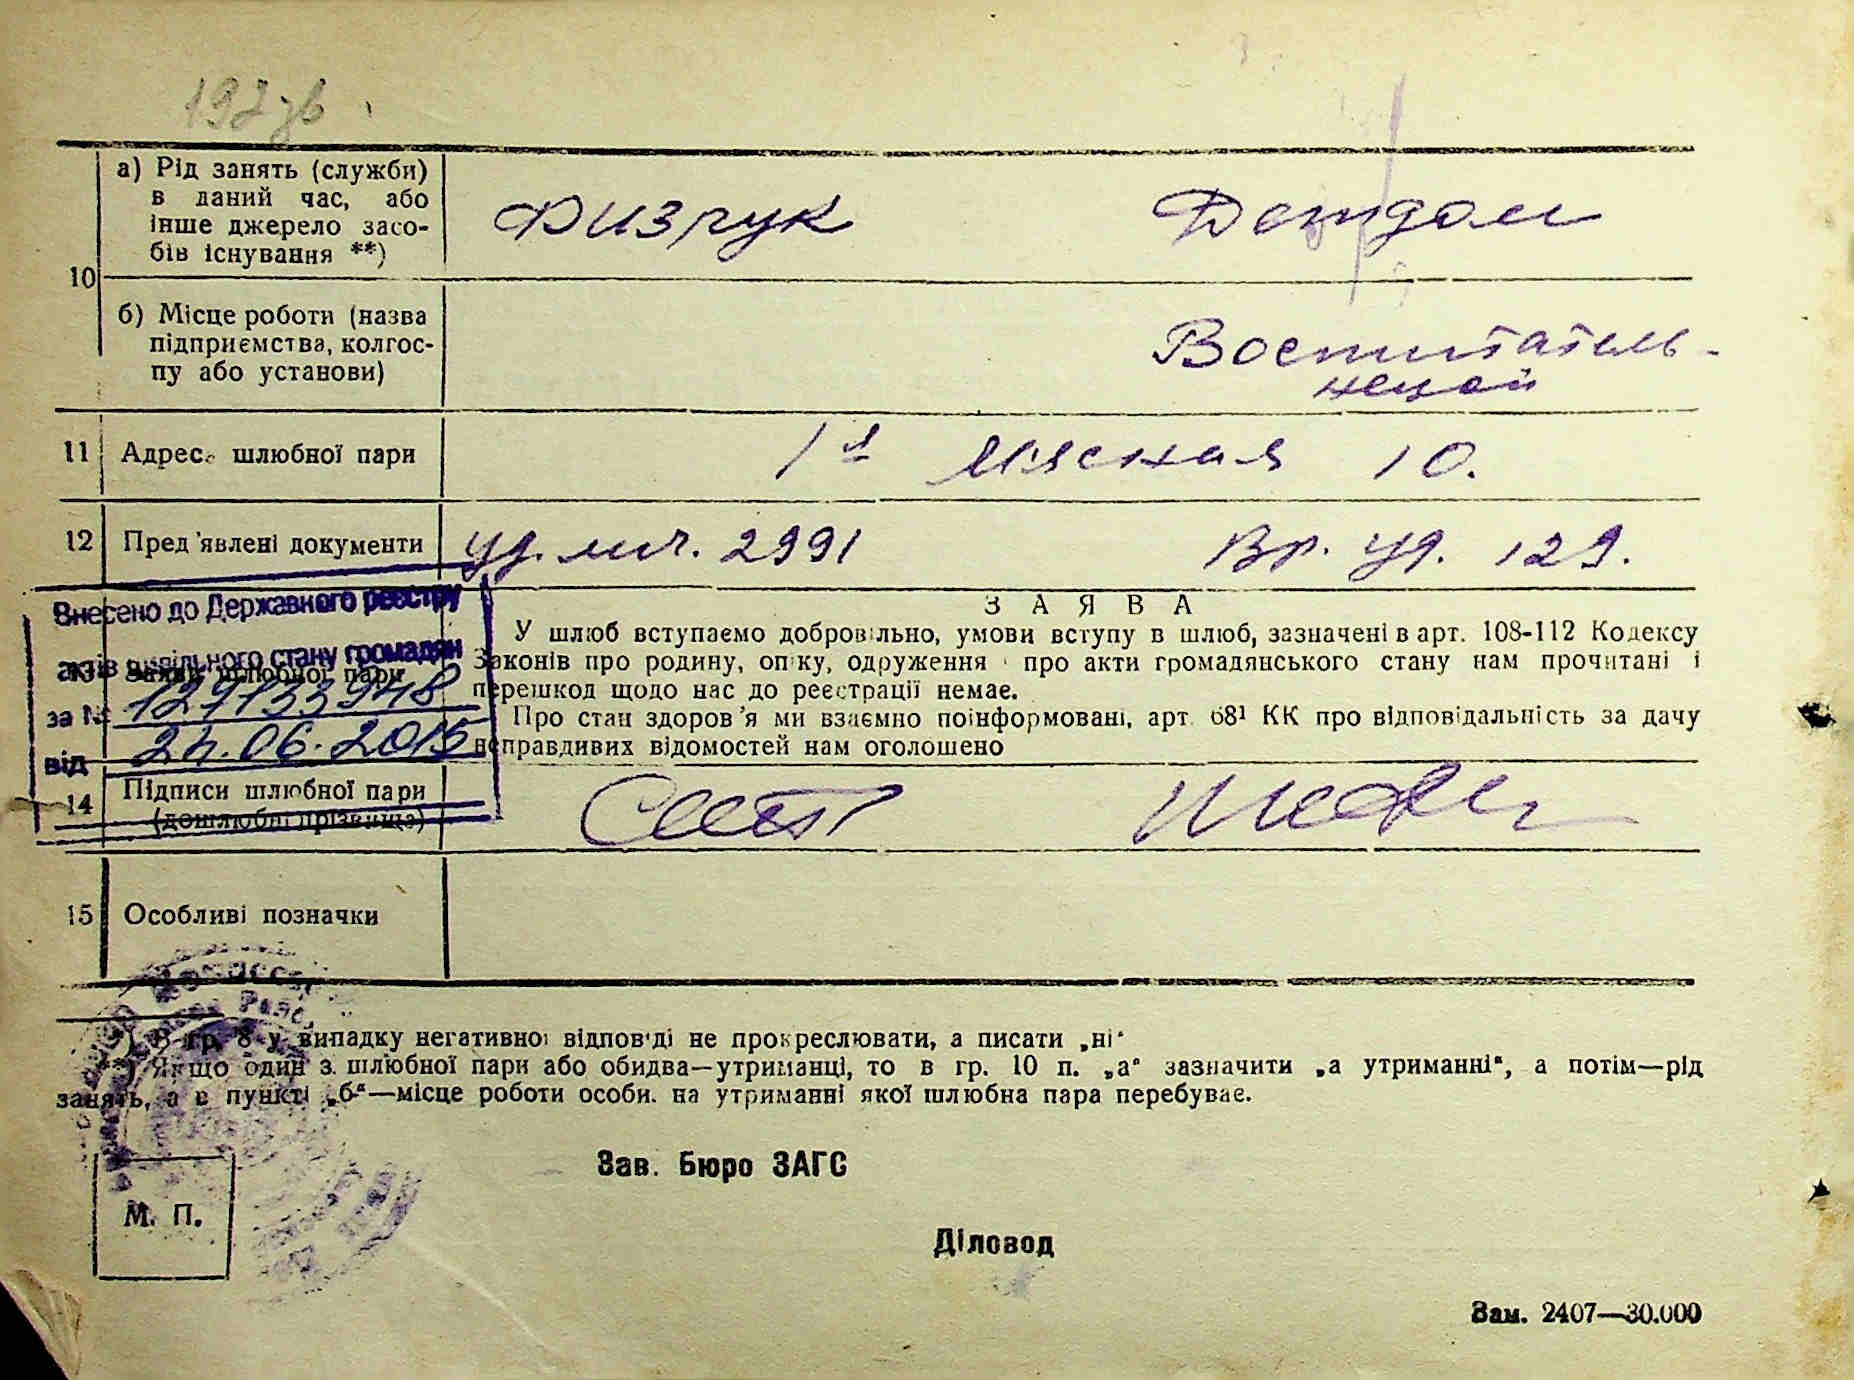 197 зв
10
а) Рід занять (служби)
в даний час, або
інше джерело засо-
бів існування **)
Физрук
Детдом
б) Місце роботи (назва
підприємства, колгос-
пу або установи)
Воспитатель-
ницей
11 Адреса шлюбної пари
1я Мясная 10.
12 Пред'явлені документи
уд. лич. 2991
Вр. уд. 129.
Внесено до Державного реєстру
актів цивільного стану громадян
за № 129133948
від 24.06.2015
13 Заява шлюбної пари
ЗАЯВА
У шлюб вступаємо добровільно, умови вступу в шлюб, зазначені в арт. 108-112 Кодексу
Законів про родину, опіку, одруження і про акти громадянського стану нам прочитані і
перешкод щодо нас до реєстрації немає.
Про стан здоров'я ми взаємно поінформовані, арт. 68¹ КК про відповідальність за дачу
неправдивих відомостей нам оголошено
14 Підписи шлюбної пари
(дошлюбні прізвища)
15 Особливі позначки
*) В гр. 8 у випадку негативної відповіді не прокреслювати, а писати „ні“
**) Якщо один з шлюбної пари або обидва—утриманці, то в гр. 10 п. „а“ зазначити „а утриманні“, а потім—рід
занять, а в пункті „б“—місце роботи особи. на утриманні якої шлюбна пара перебуває.
Зав. Бюро ЗАГС
М. П.
Діловод
Зам. 2407—30.000